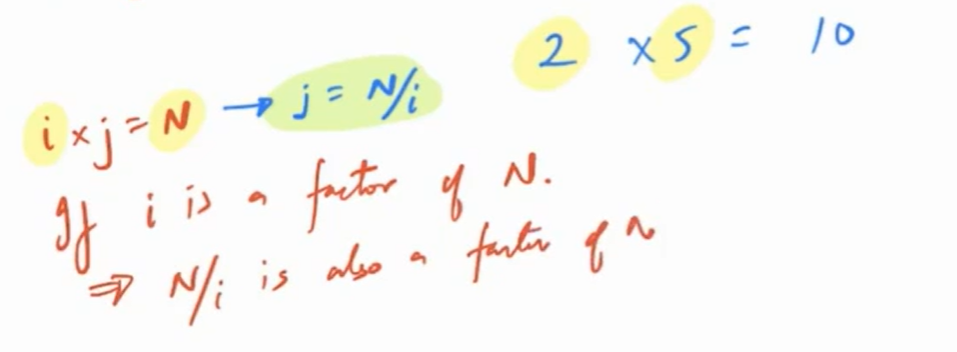 2 x 5 = 10
i x j = N → j = N/i
If i is a factor of N.
⇒ N/i is also a factor of n